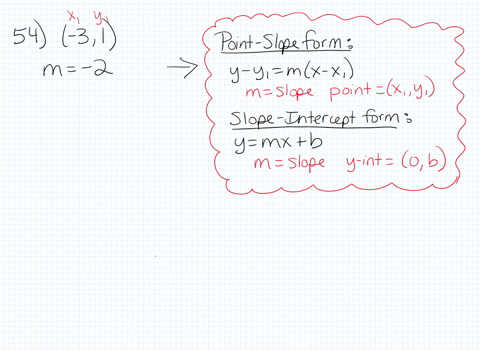 x₁ y₁
54) (-3,1)
m=-2
Point-Slope form:
y-y₁=m(x-x₁)
m=slope point=(x₁,y₁)
Slope-Intercept form:
y=mx+b
m=slope y-int=(0,b)